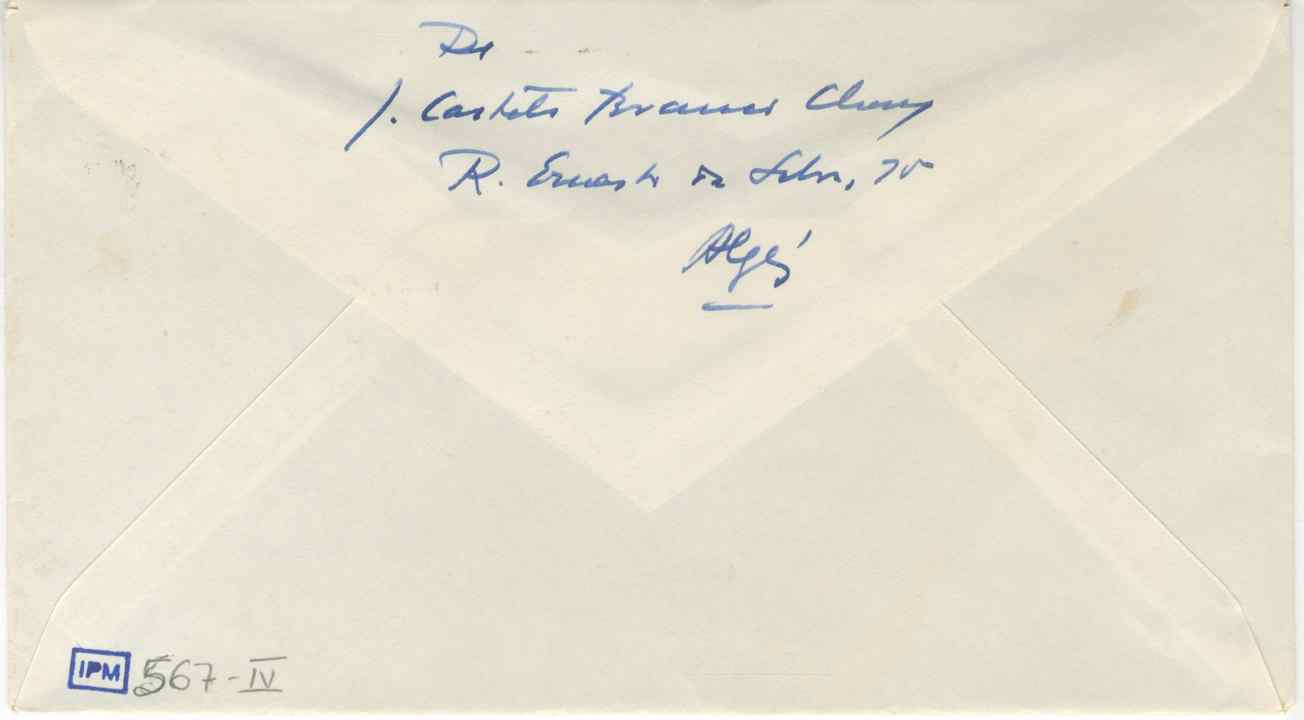 De
J. Castelo Branco Chaves
R. Ernesto da Silva, 75
Algés
IPM 567-IV